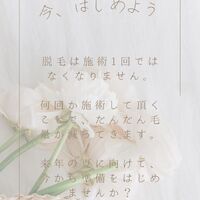 今、はじめよう
脱毛は施術1回では
なくなりません。
何回か施術して頂く
ことで、だんだん毛
量が減ってきます。
来年の夏に向けて、
今から準備をはじめ
ませんか？